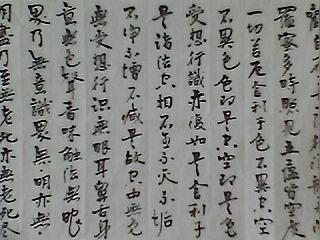 觀自在
羅蜜多時照見五蘊皆空度
一切苦厄舍利子色不異空空
不異色色即是空空即是色
受想行識亦復如是舍利子
是諸法空相不生不滅不垢
不淨不增不減是故空中無色
無受想行识無眼耳鼻舌身
意無色聲香味觸法無眼
界乃無意識界無明亦無
明盡乃至無老死亦無老死盡